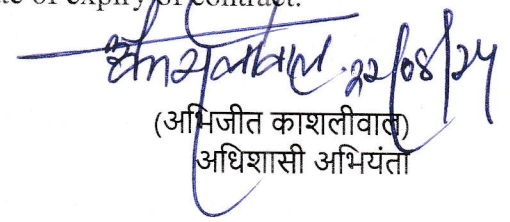 te of expiry of contract.
22/08/24
(अभिजीत काशलीवाल)
अधिशासी अभियंता